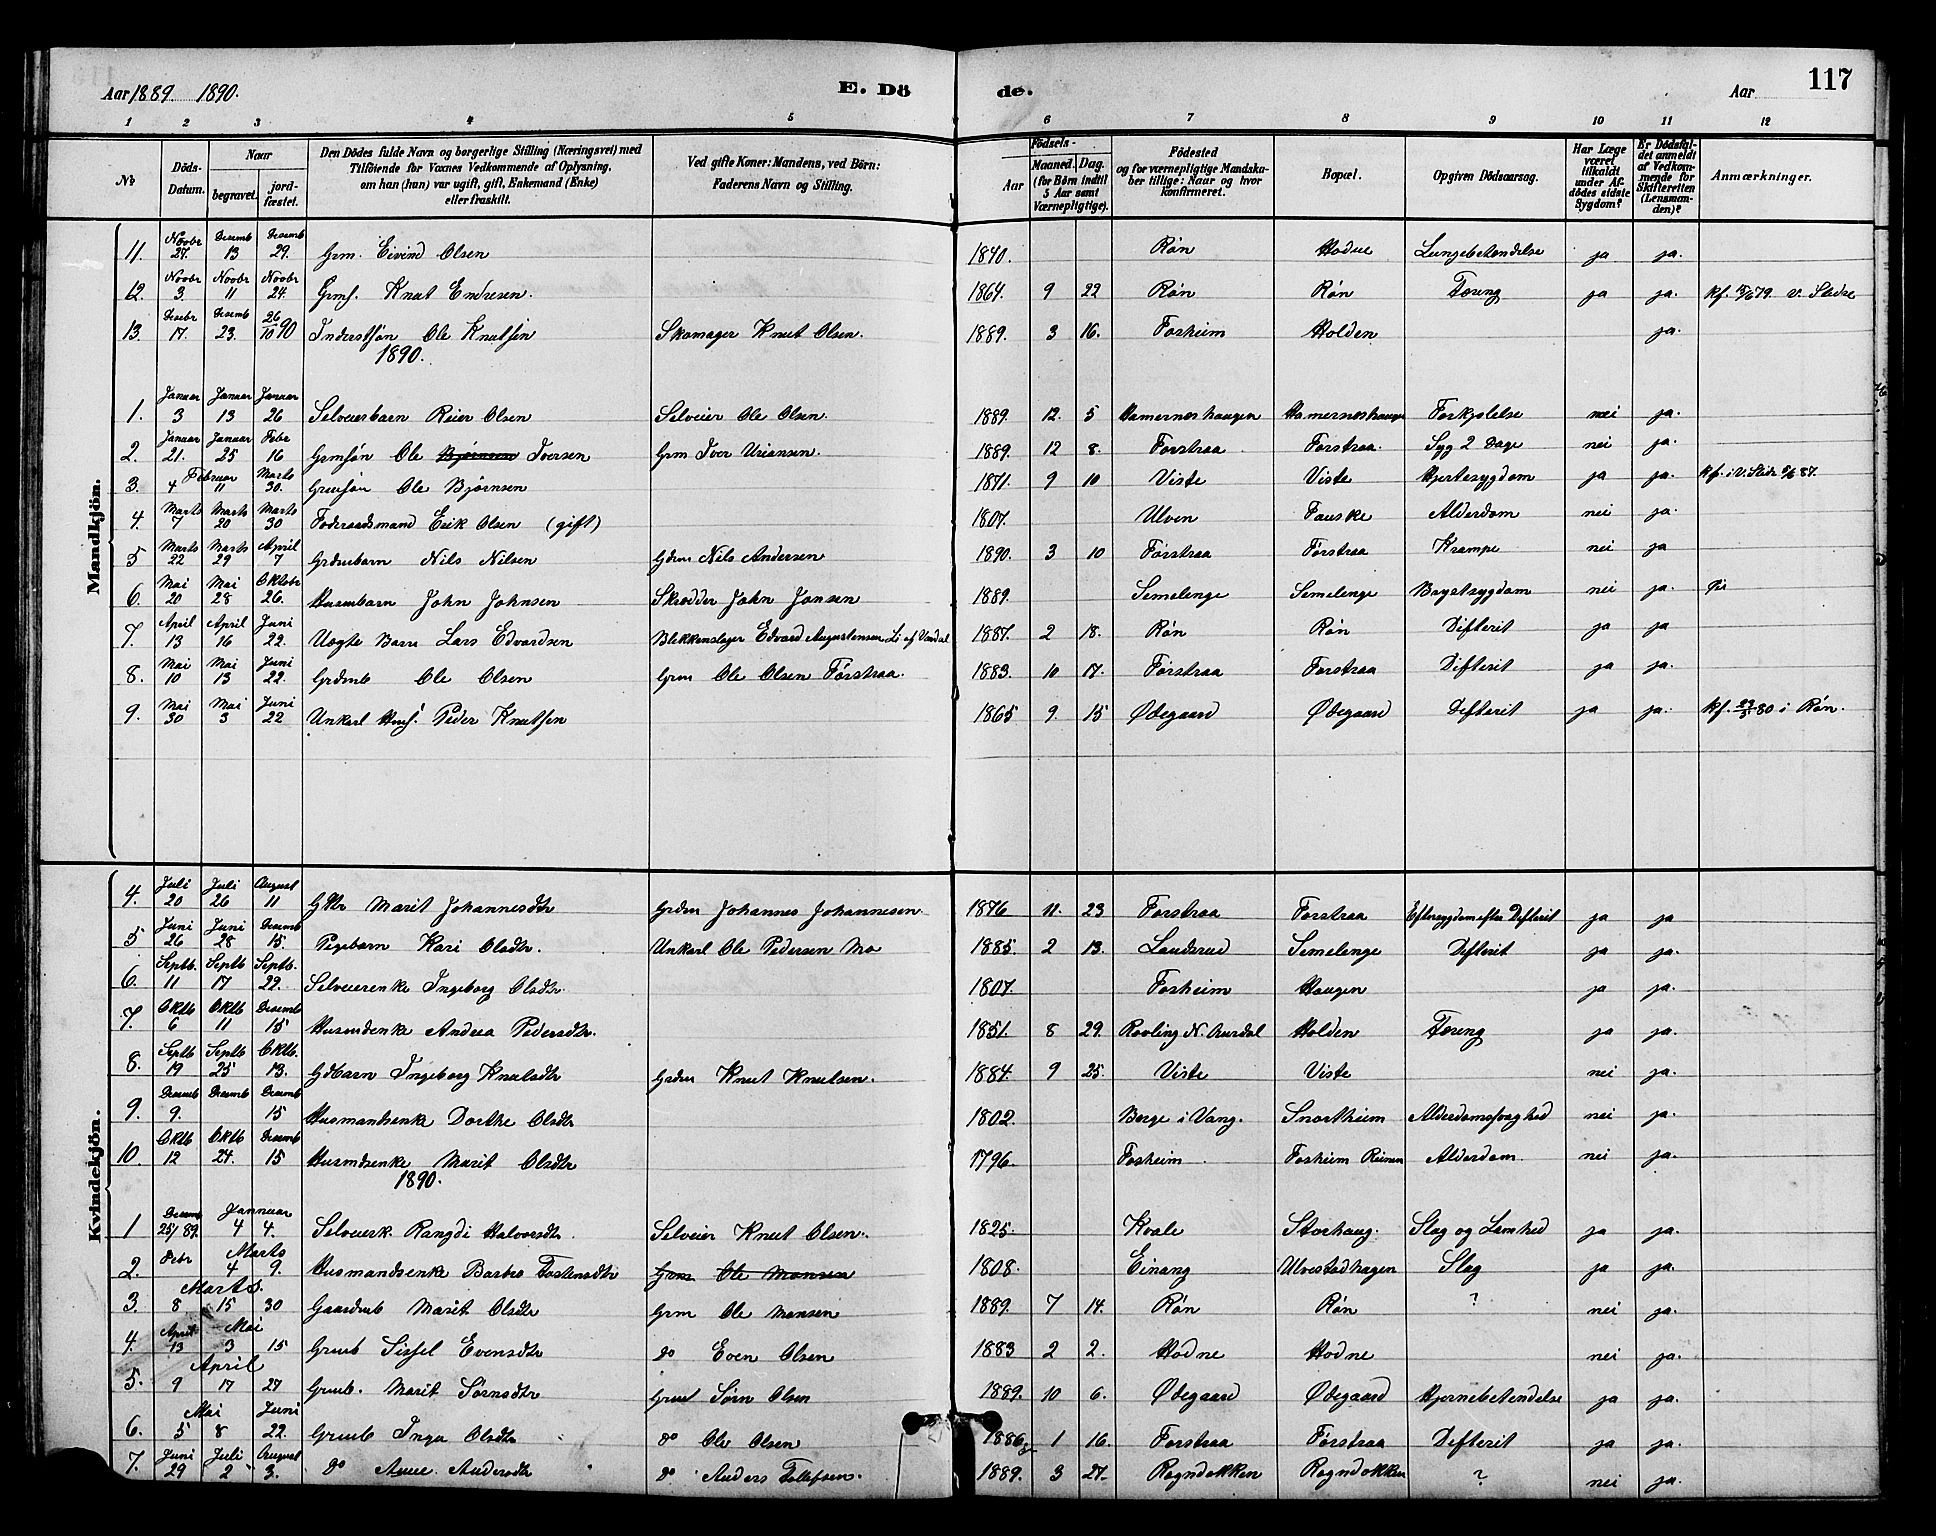 Aar 1889 1890. E. Dö de. Aar 117
1 2 3 4 5 6 7 8 9 10 11 12
No Döds-Datum. Naar begravet. jord-fæstet. Den Dödes fulde Navn og borgerlige Stilling (Næringsvei) med Tilföiende for Voxnes Vedkommende af Oplysning, om han (hun) var ugift, gift, Enkemand (Enke) eller fraskilt. Ved gifte Koner: Mandens, ved Börn: Faderens Navn og Stilling. Födsels- Aar Maaned. Dag. (for Börn indtil 5 Aar samt Værnepligtige). Födested og for værnepligtige Mandskaber tillige: Naar og hvor konfirmeret. Bopæl. Opgiven Dödsaarsag. Har Læge været tilkaldt under Afdödes sidste Sygdom? Er Dödsfaldet anmeldt af Vedkommende for Skifteretten (Lensmanden)? Anmærkninger.
Mandkjön.
11. Novbr 27. Desemb 13 Desemb 29. Grm. Eivind Olsen 1840. Røn Hodne Lungebetændelse ja ja.
12. Novbr 3. Novbr 11 Novbr 24. Grms. Knut Endresen. 1864. 9 22 Røn Røn Tæring ja ja. kf. 15/6 79. V. Slidre
13. Desbr 17. Desemb 23. 26/10 90 Inderstsøn Ole Knutsen Skomager Knut Olsen. 1889. 3 16. Fosheim Holden ja.
1890.
1. Januar 3 Januar 13 Januar 26 Selveierbarn Reier Olsen Selveier Ole Olsen. 1889. 12. 5 Hamerneshaugen Hamerneshaugen Forkjølelse nei ja.
2. Januar 21. Januar 25 Febr 16 Grmsøn Ole Bjørnson Iversen Grm Iver Uriansen. 1889. 12 8. Forstraa Forstraa Syg 2 Dage nei ja.
3. Februar 4 11 Marts 30. Grmsøn Ole Bjørnsen 1871. 9 10 Viste Viste Hjertesygdom ja ja kf. i V. Slidr 5/6 87.
4. Marts 7 Marts 20 Marts 30 Foderaadsmand Erik Olsen (gift) 1807. Ulven Fauske Alderdom nei ja.
5 Marts 22 Marts 29 April 7 Grdmbarn Nils Nilsen Gdm Nils Andersen 1890. 3 10 Førstraa Førstraa Krampe nei ja
6. Mai 20 Mai 28 Oktobr 26. Husmbarn John Johnsen Skrædder John Jonsen 1889. Semelenge Semelenge Brystsygdom nei ja.
7. April 13 April 16 Juni 22. Uægte Barn Lars Edvardsen Blekkenslager Edvard Augustensen Li af Vardal 1887. 2 18. Røn Røn Difterit ja ja
8. Mai 10 Mai 13 Juni 22. Grdmb Ole Olsen Grm Ole Olsen Førstraa. 1883. 10 17. Førstraa Forstraa Difterit ja ja.
9. Mai 30 Mai 3 Juni 22 Unkarl Husf. Peder Knutsen 1865 9. 15 Ødegaard Ødegaard Difterit ja ja. kf. 29/5 80 i Røn.
Kvindekjön.
4. Juli 20 Juli 26 August 11 Gdtr Marit Johannesdtr Grdm Johannes Johannesen 1876 11. 23 Forstraa Forstraa Eftersygdom efter Difterit ja ja
5 Juni 26 Juni 28 Desemb 15. Pigebarn Kari Olsdtr. Unkarl Ole Pedersen Mo 1885. 2 13. Landsrud Semelenge Difterit ja ja.
6. Septb. 11 Septb 17 Septb. 22. Selveierenke Ingeborg Olsdtr. 1807. Fosheim Haugen ja ja.
7. Oktb 6 Oktb 11 Desemb 15 Husmdenke Andrea Pedersdtr. 1851. 8 29. N. Aurdal Holden Tæring ja ja.
8. Septb 19 Septb 25 Oktb. 13. Gdbarn Ingeborg Knutsdtr Grdm Knut Knutsen. 1884. 9 25. Viste Viste nei ja.
9. Desemb 9. Desemb Desemb 15 Husmandsenke Dorthe Olsdtr 1802. Berge i Vang. Snortheim Alderdomssvaghed nei ja.
10. Oktb 12 Oktb 24. Desemb 15 Husmdsenke Marit Olsdtr 1796. Fosheim Fosheim Reinen Alderdom. nei ja.
1890.
1 Desemb 25/89. Jannuar 4 4. Selveierk. Rangdi Halvorsdtr. Selveier Knut Olsen. 1825. Kvale Storhaug. Slag og Lamhed ja ja.
2. Febr Marts 4 9. Husmandsenke Barbro Tostensdtr Grm Ole Monsen 1808. Einang Ulvestadhagen Slag ja ja.
3. Marts. 8 15 30 Gaardmb Marit Olsdtr Grm Ole Monsen 1889. 7 14. Røn Røn ? nei ja.
4. April 13 Mai 3 15 Grmb Sissel Evensdtr do Even Olsen 1883 2 2. Hodne Hodne nei ja.
5. April 9 17 27 Grmb. Marit Sørnsdtr Grm Sørn Olsen 1889. 10 6. Ødegaard Ødegaard Hjernebetendelse ja ja.
6. Mai 5 8 Juni 22. Grmb Inga Olsdtr do Ole Olsen 1886 1 16. Forstraa Førstraa Difterit ja ja.
7. Juni 29 Juli 2 August 3. do Anne Andersdtr do Anders Tollefsen. 1889. 3 27. Rogndokken Rogndokken ? nei ja.